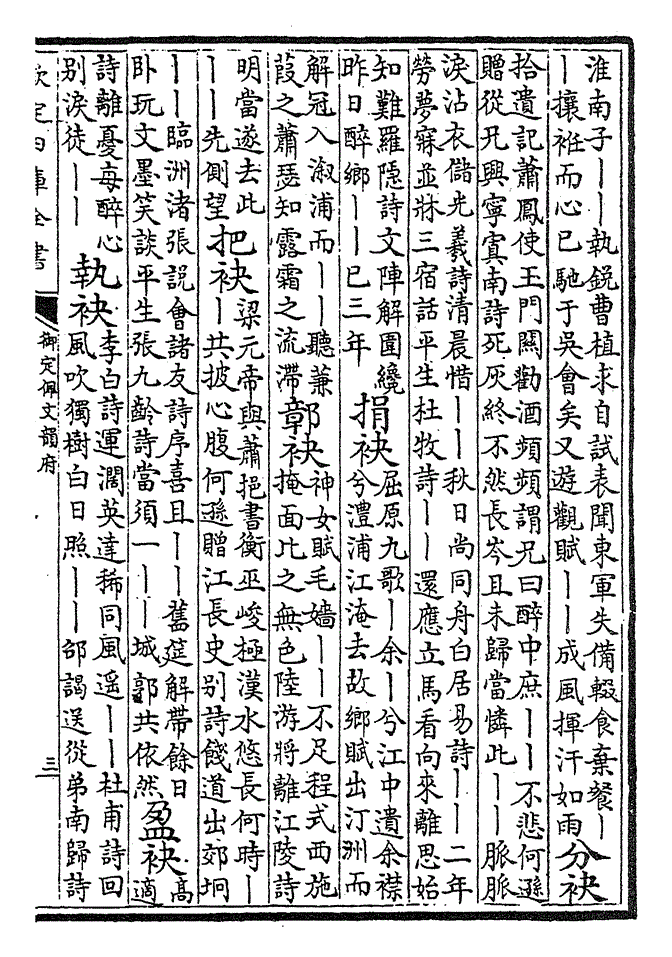 淮南子｜｜執銳曹植求自試表聞東軍失備輟食棄餐｜
｜攘袵而心已馳于吳會矣又遊觀賦｜｜成風揮汗如雨
分袂
拾遺記蕭鳳使王門關勸酒頻頻謂兄曰醉中庶｜｜不悲何遜
贈從兄興寧寘南詩死灰終不然長岑且未歸當憐此｜｜脈脈
淚沾衣儲光羲詩清晨惜｜｜秋日尚同舟白居易詩｜｜二年
勞夢寐並牀三宿話平生杜牧詩｜｜還應立馬看向來離思始
知難羅隱詩文陣解圍繞
昨日醉鄉｜｜已三年
捐袂
屈原九歌｜余｜兮江中遺余襟
兮澧浦江淹去故鄉賦出汀洲而
解冠入溆浦而｜｜聽蒹
葭之蕭瑟知露霜之流滯
鄣袂
神女賦毛嬙｜｜不足程式西施
掩面比之無色陸游將離江陵詩
明當遂去此
｜｜先側望
把袂
梁元帝與蕭挹書衡巫峻極漢水悠長何時｜
｜共披心腹何遜贈江長史别詩餞道出郊坰
｜｜臨洲渚張説會諸友詩序喜且｜｜舊筵解帶餘日
卧玩文墨笑談平生張九齡詩當須一｜｜城郭共依然
盈袂
高
適
詩離憂每醉心
别淚徒｜｜
執袂
李白詩運濶英達稀同風遥｜｜杜甫詩回
風吹獨樹白日照｜｜邵謁送從弟南歸詩
欽定四庫全書
御定佩文韻府
三